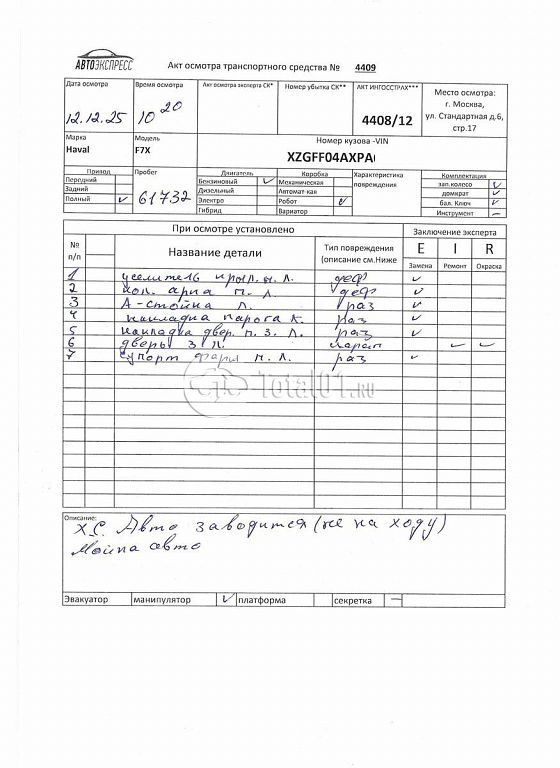 АВТОЭКСПРЕСС
Акт осмотра транспортного средства № 4409
Дата осмотра
12.12.25
Время осмотра
10 20
Акт осмотра эксперта СК*
Номер убытка СК**
АКТ ИНГОССТРАХ***
4408/12
Место осмотра:
г. Москва,
ул. Стандартная д.6,
стр.17
Марка
Haval
Модель
F7X
Номер кузова -VIN
XZGFF04AXPA
Привод
Передний
Задний
Полный
Пробег
61732
Двигатель
Бензиновый
Дизельный
Электро
Гибрид
Коробка
Механическая
Автомат-кая
Робот
Вариатор
Характеристика
повреждения
Комплектация
зап.колесо
домкрат
бал. Ключ
Инструмент –
При осмотре установлено
Заключение эксперта
№ п/п
Название детали
Тип повреждения
(описание см.Ниже
E I R
Замена Ремонт Окраска
1 уселитель крыл. л. деф
2 арка п. л. деф
3 А-стойка л. раз
4 накладка парога раз
5 накладка двер. п. з. л. раз
6 дверь з л. – –
7 супорт фары п. л. раз
Total01.ru
Описание:
Х.С. Авто заводится (не на ходу)
Мойка авто
Эвакуатор манипулятор платформа секретка –